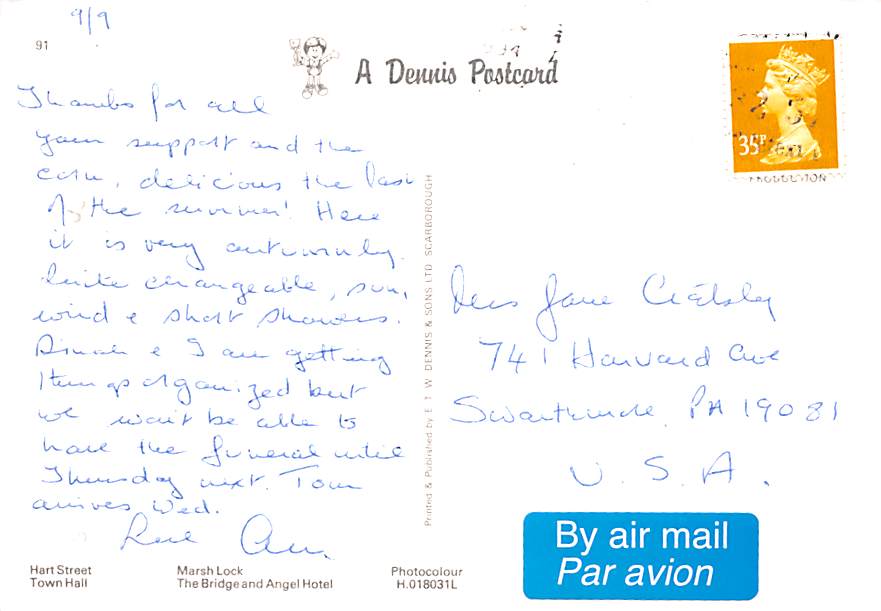 9/9
91
A Dennis Postcard
Thanks for all
your support and the
corn, delicious the last
of the summer! Here
it is very autumnly.
Quite changeable, sun,
wind & short showers.
Dinah & I are getting
things organized but
we won't be able to
have the funeral until
Thursday next. Tom
arrives Wed.
Love Ann.
Hart Street
Town Hall
Marsh Lock
The Bridge and Angel Hotel
Photocolour
H.018031L
Printed & Published by E. T. W. DENNIS & SONS LTD. SCARBOROUGH
35P
Jane
741 Harvard Ave
Swarthmore, PA 19081
U.S.A.
By air mail
Par avion